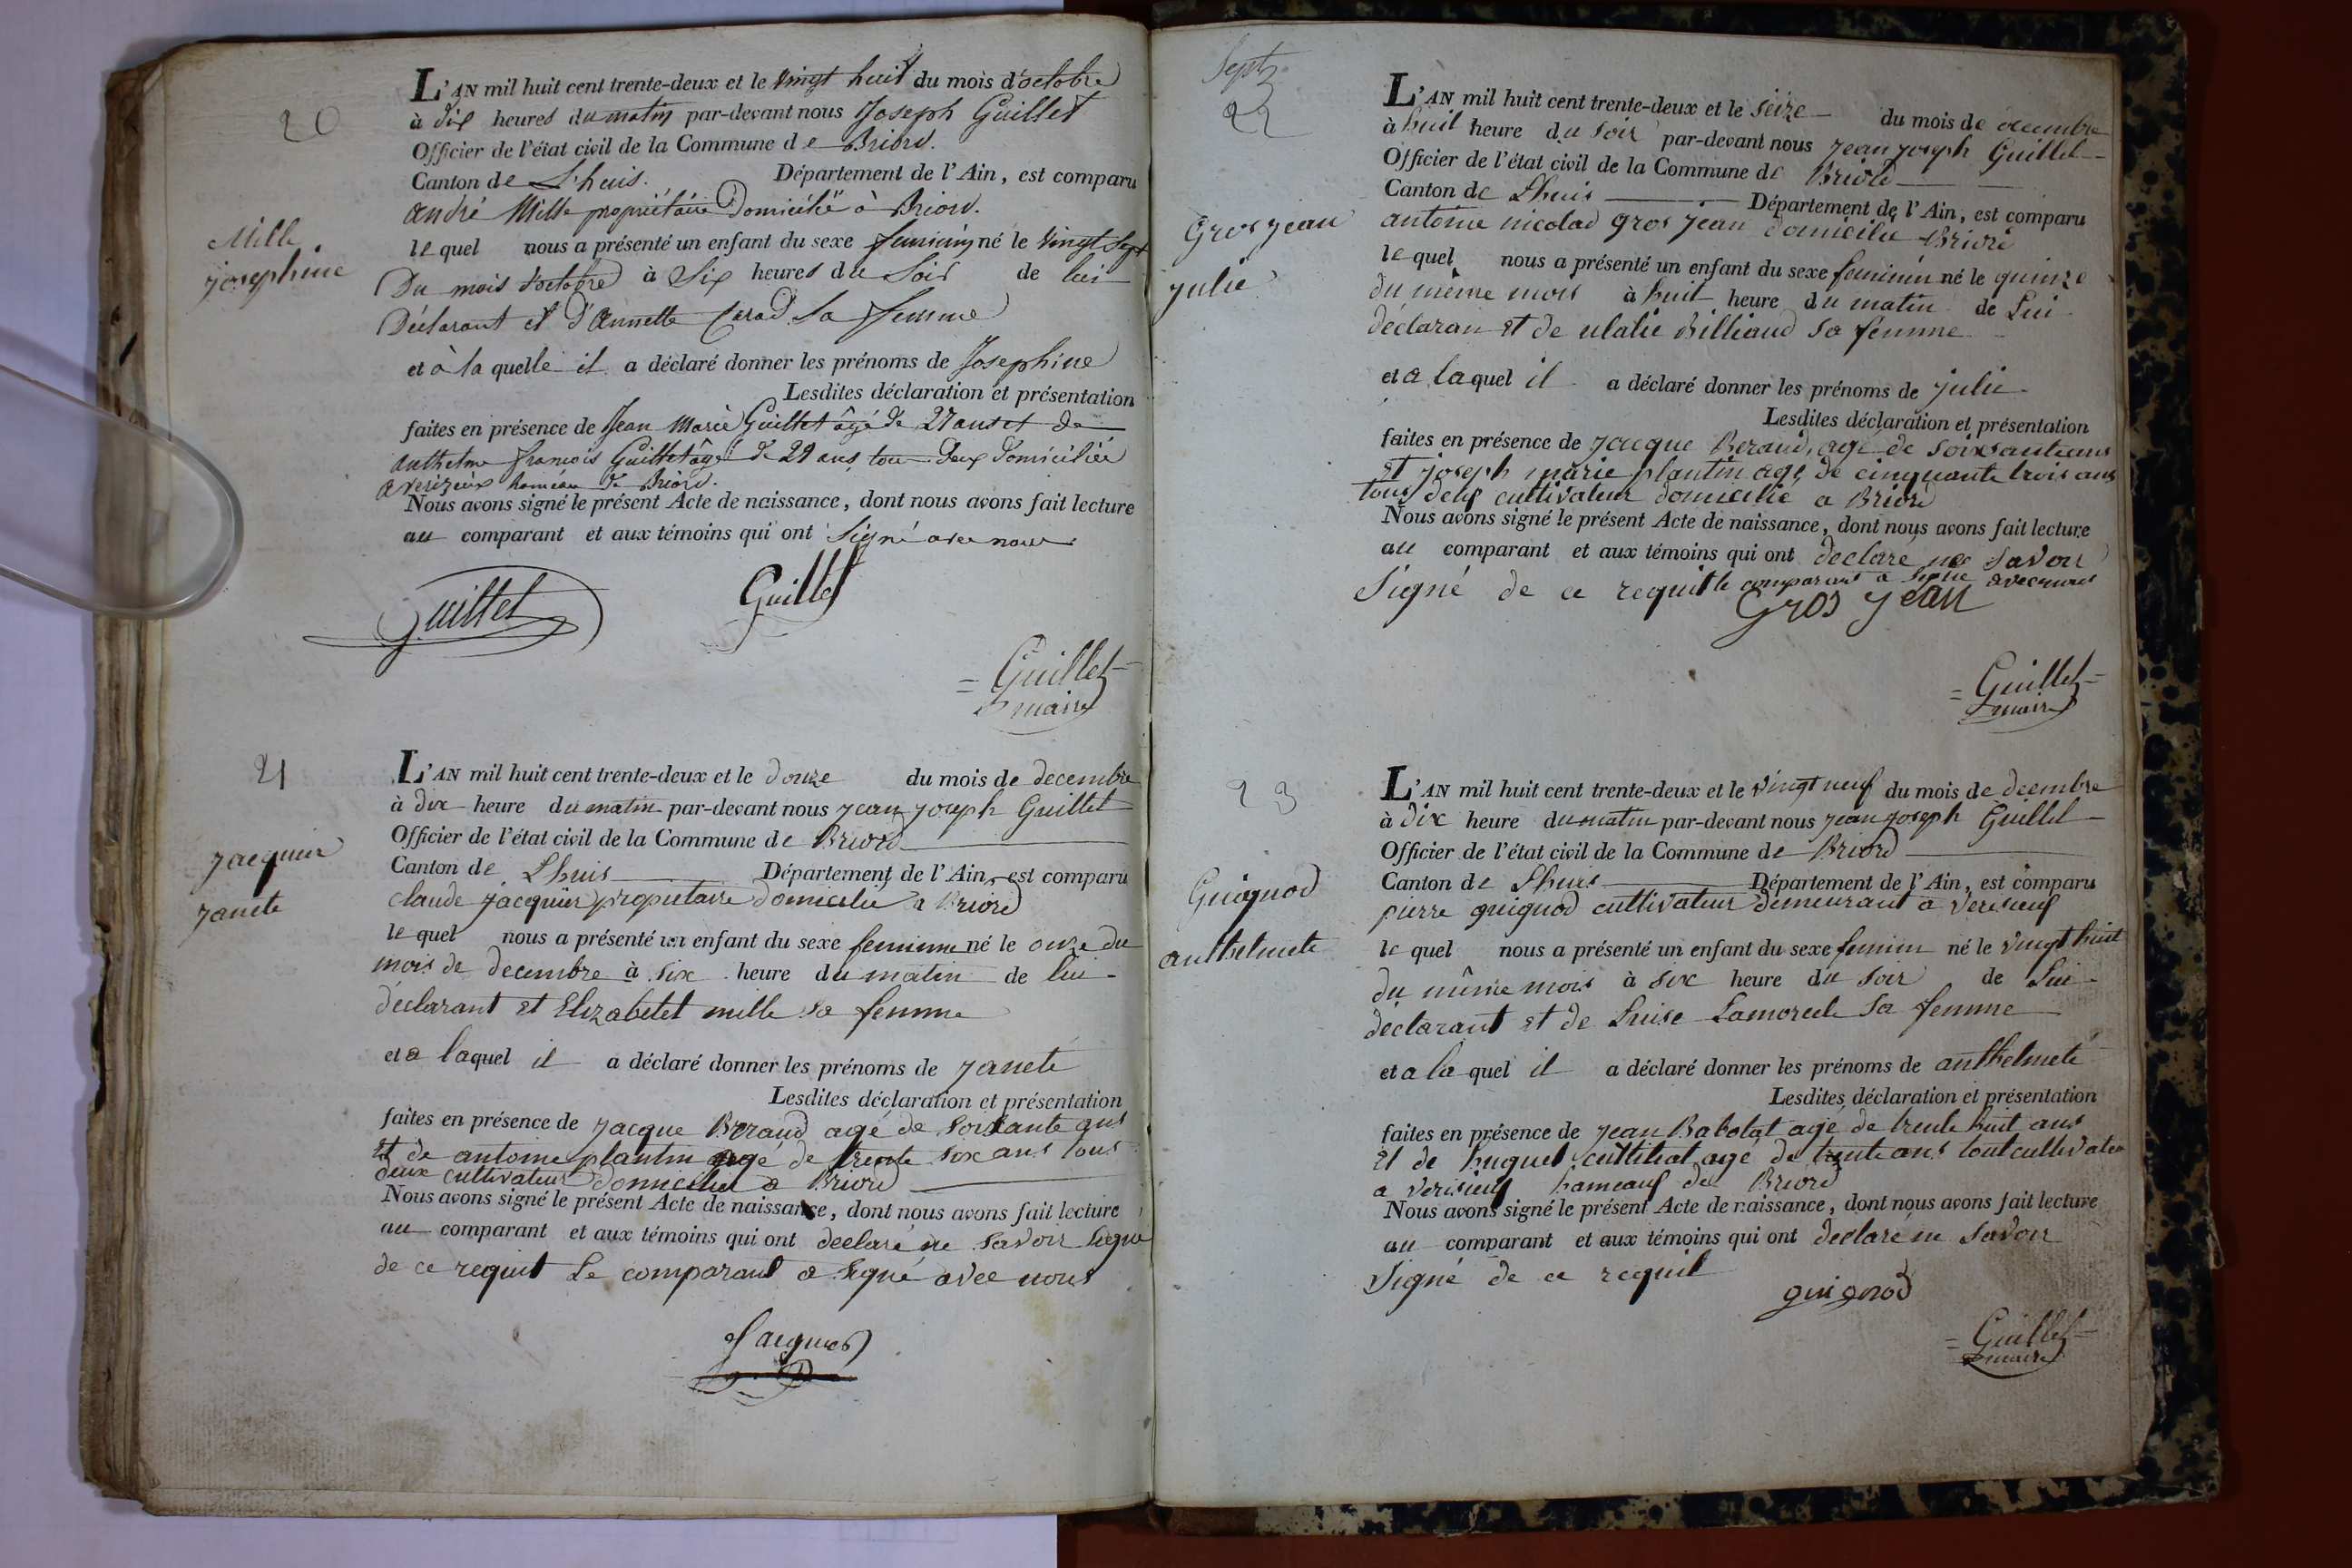 20
Mille
josephine
L'AN mil huit cent trente-deux et le vingt huit du mois d'octobre
à dix heures du matin par-devant nous Joseph Guillet
Officier de l'état civil de la Commune de Briord.
Canton de L'huis. Département de l'Ain, est comparu
André Mille propriétaire Domicilié à Briord.
lequel nous a présenté un enfant du sexe feminin né le vingt sept
Du mois d'octobre à Six heures du Soir de lui
Déclarant et d'Annette sa femme
et à la quelle il a déclaré donner les prénoms de Josephine
Lesdites déclaration et présentation
faites en présence de Jean Marie Guillet âgé de 27 ans et de
Anthelme françois Guillet âgé de 29 ans tou deux Domiciliés
a verizieux hameau de Briord.
Nous avons signé le présent Acte de naissance, dont nous avons fait lecture
au comparant et aux témoins qui ont Signé avec nous
Guillet Guillet
= Guillet =
maire
21
Jacquier
janete
L'AN mil huit cent trente-deux et le douze du mois de decembre
à dix heure du matin par-devant nous jean joseph Guillet
Officier de l'état civil de la Commune de Briord
Canton de Lhuis Département de l'Ain, est comparu
claude jacquier propietaire domicilié a Briord
lequel nous a présenté un enfant du sexe feminin né le onze du
mois de decembre à six heure du matin de lui
déclarant et Elizabetet mille sa femme
et a laquel il a déclaré donner les prénoms de janete
Lesdites déclaration et présentation
faites en présence de jacque Beraud agé de soixante ans
et de antoine plantin agé de trente six ans tous
deux cultivateur domicilié a Briord
Nous avons signé le présent Acte de naissance, dont nous avons fait lecture
au comparant et aux témoins qui ont declaré ne savoir signé
de ce requit Le comparant a signé avec nous
Jacquier
Sept
22
Gros jean
julie
L'AN mil huit cent trente-deux et le seize du mois de decembre
à huit heure du soir par-devant nous jean joseph Guillet
Officier de l'état civil de la Commune de Briord
Canton de Lhuis Département de l'Ain, est comparu
antoine nicolad gros jean domicilié Briord
lequel nous a présenté un enfant du sexe feminin né le quinze
du même mois à huit heure du matin de Lui
déclaran et de ulalie Billiaud sa femme
et a laquel il a déclaré donner les prénoms de julie
Lesdites déclaration et présentation
faites en présence de jacque Beraud, agé de soixante ans
et joseph marie plantin agé de cinquante trois ans
tous deux cultivateur domicilié a Briord
Nous avons signé le présent Acte de naissance, dont nous avons fait lecture
au comparant et aux témoins qui ont declaré ne savoir
Signé de ce requit le comparant a signé avec nous
Gros jean
= Guillet =
maire
23
Guignod
anthelmete
L'AN mil huit cent trente-deux et le vingt neuf du mois de decembre
à dix heure du matin par-devant nous jean joseph Guillet
Officier de l'état civil de la Commune de Briord
Canton de Lhuis Département de l'Ain, est comparu
pierre guignod cultivateur demeurant a verisieuf
lequel nous a présenté un enfant du sexe feminin né le vingt huit
du même mois à six heure du soir de Lui
déclarant et de Luise sa femme
et a la quel il a déclaré donner les prénoms de anthelmete
Lesdites déclaration et présentation
faites en présence de jean Babolat agé de trente huit ans
et de huguet agé de trente ans tout cultivateur
a verisieuf hameauf de Briord
Nous avons signé le présent Acte de naissance, dont nous avons fait lecture
au comparant et aux témoins qui ont declaré ne savoir
Signé de ce requit
guignod
= Guillet =
maire